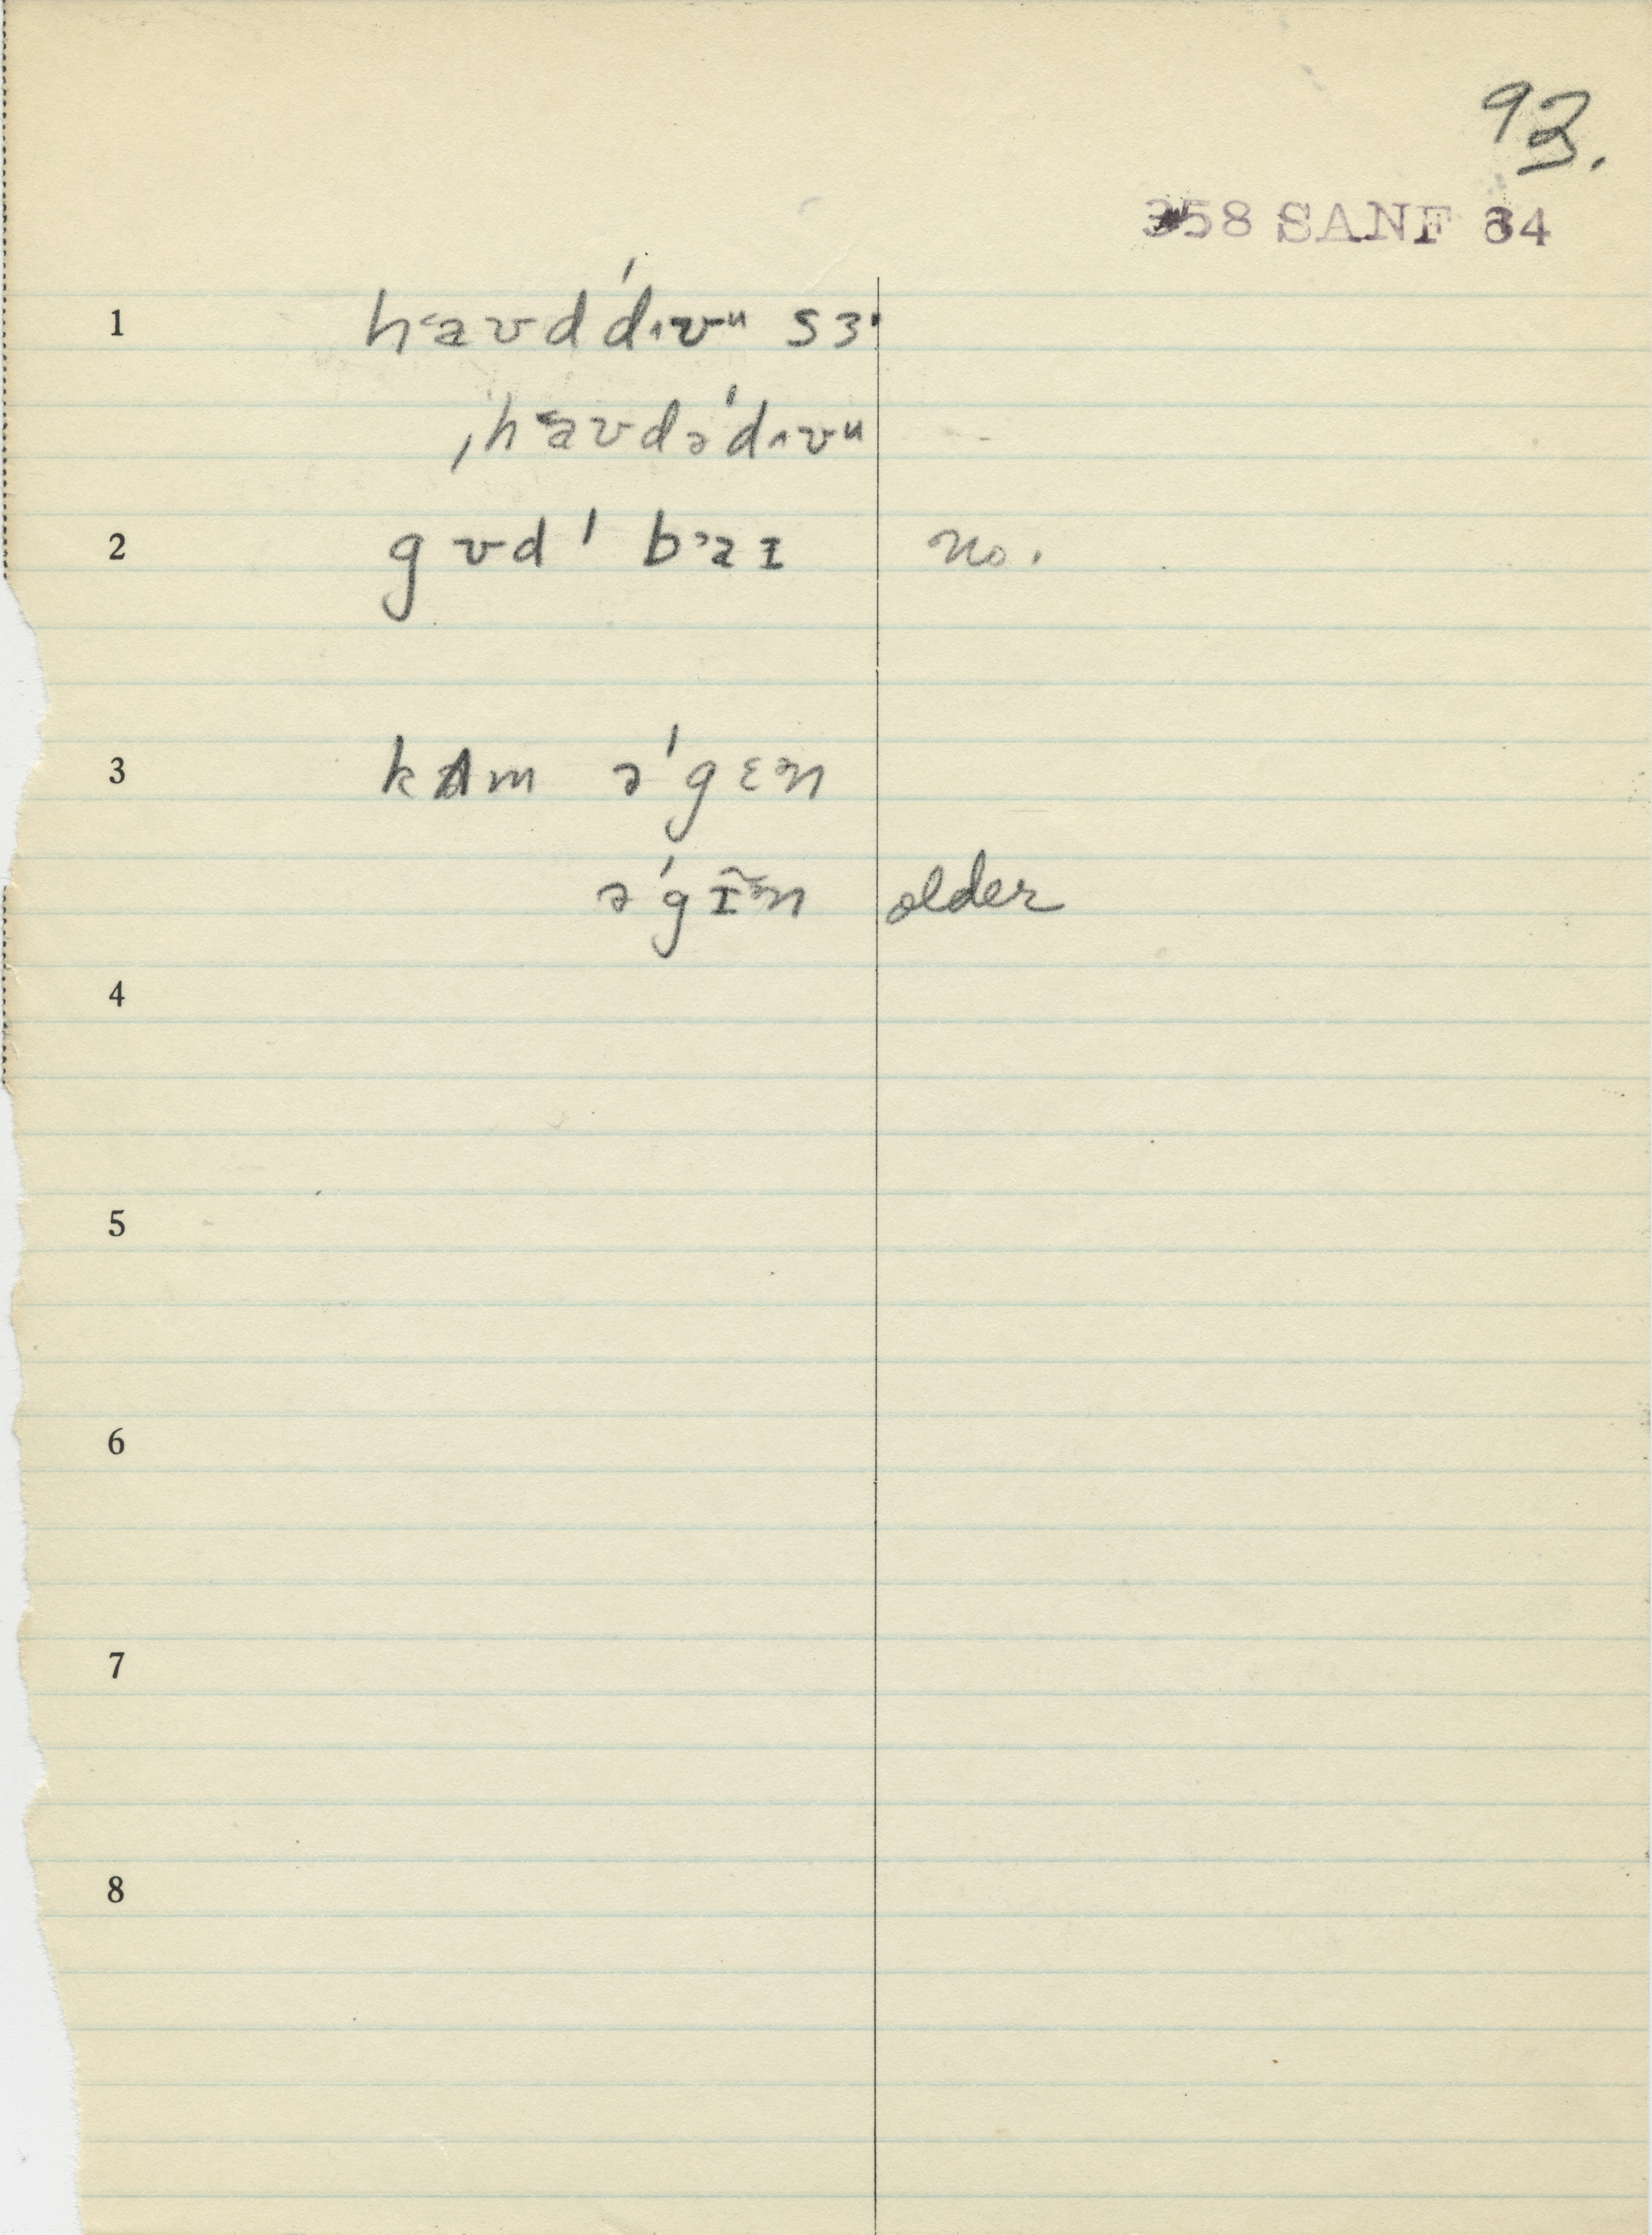 93.
358 SANF 64
1 h˂aʊdˈdɪʊᵘ sɜ·
ˌh˂aʊdəˈdɪʊᵘ
2 gʊdˈ b˃aɪ no.
3 kʌm əˈgɛn
əˈgɪ̃n older
4
5
6
7
8